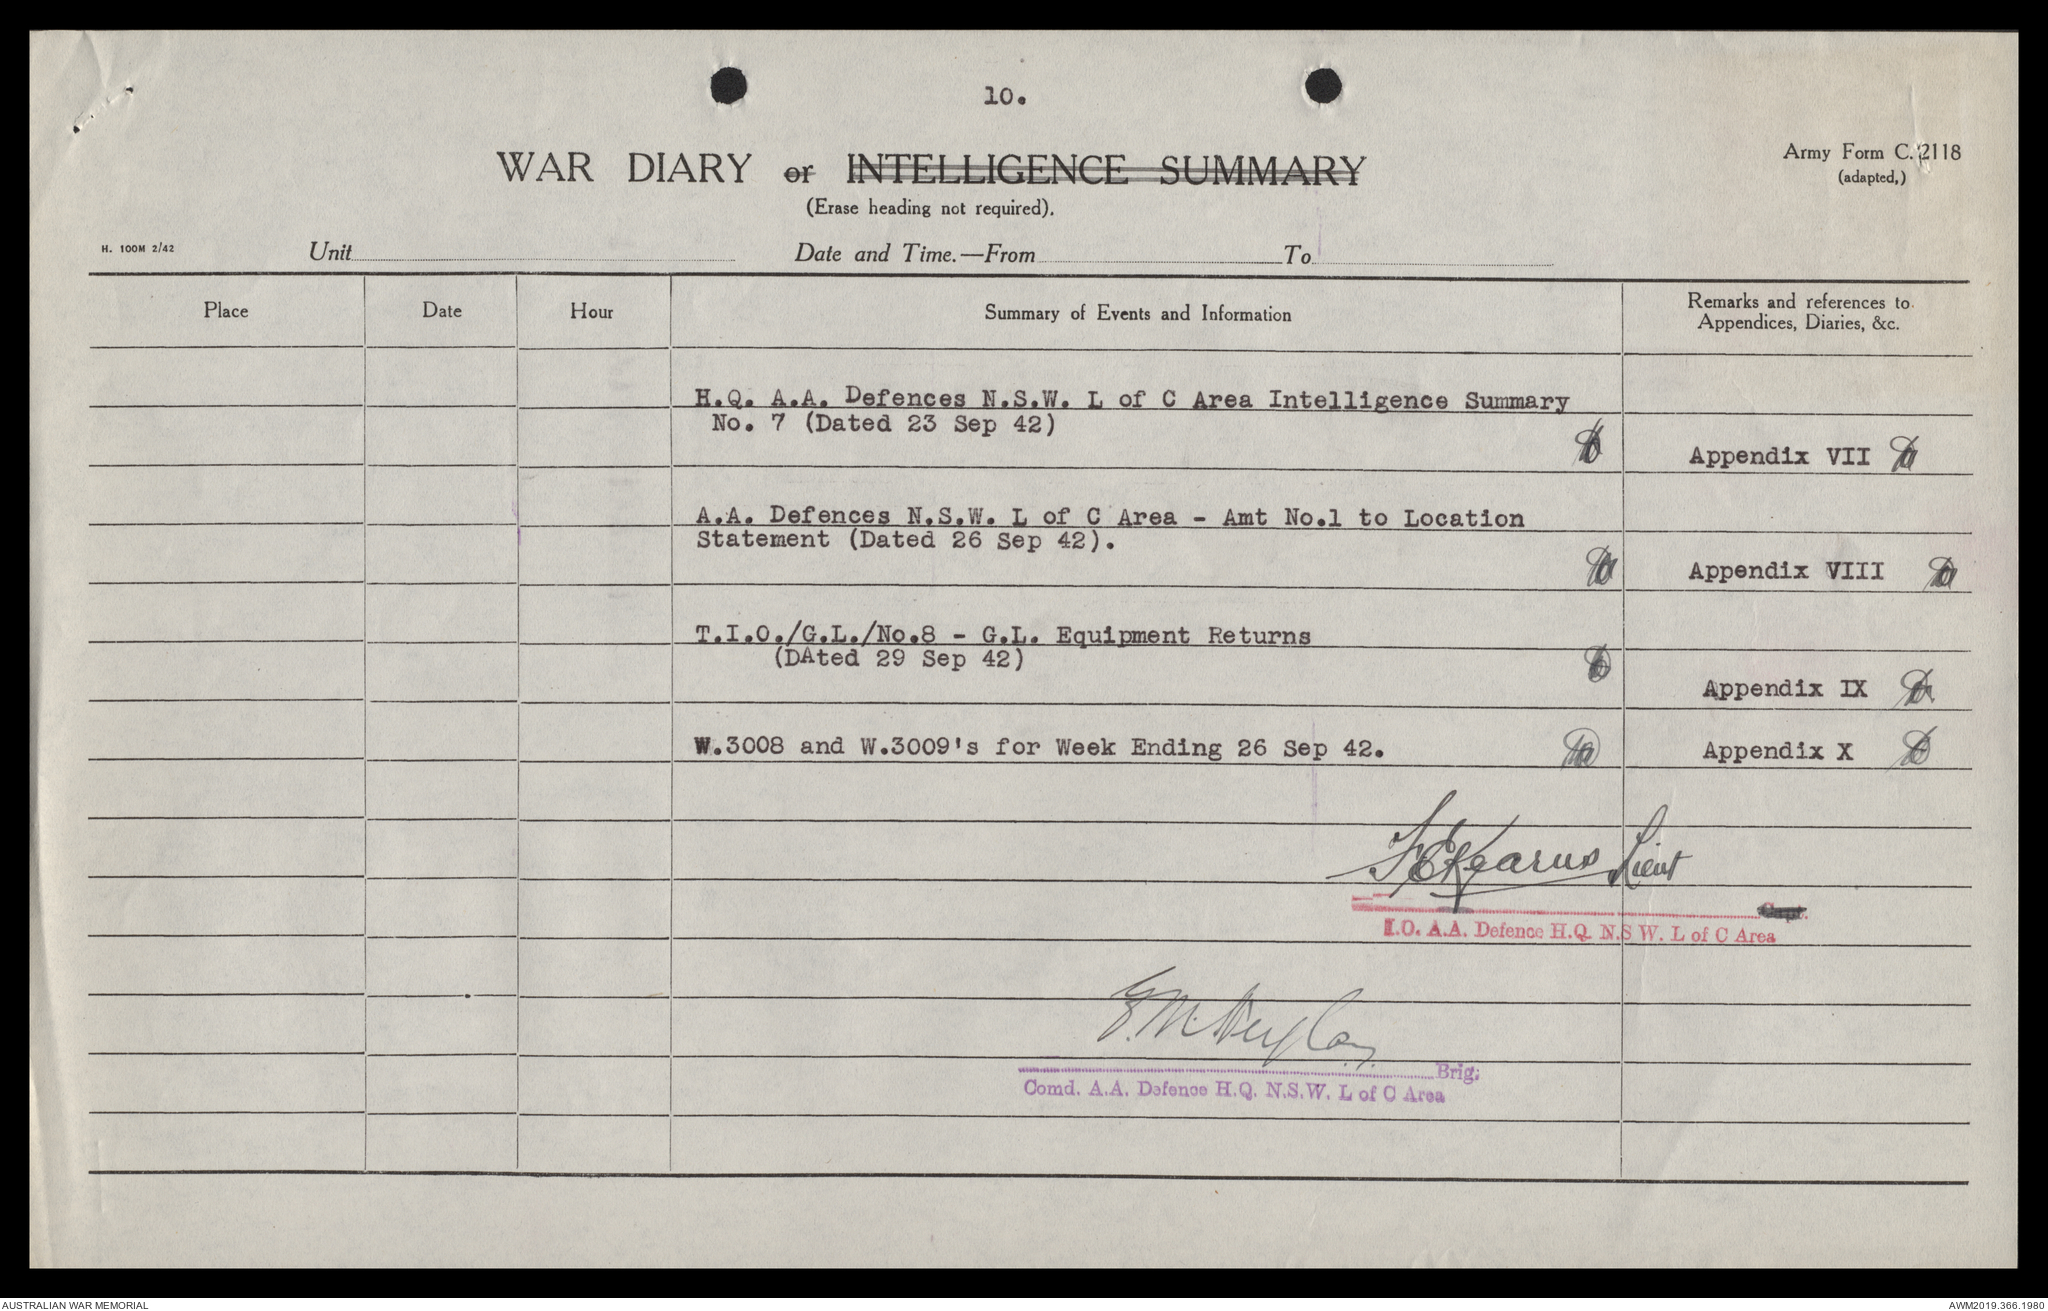 10.
Army Form C. 2118
(adapted,)
WAR DIARY or INTELLIGENCE SUMMARY
(Erase heading not required).
H. 100M 2/42
Unit
Date and Time.—From
To
Place
Date
Hour
Summary of Events and Information
Remarks and references to
Appendices, Diaries, &c.
H.Q. A.A. Defences N.S.W. L of C Area Intelligence Summary
No. 7 (Dated 23 Sep 42)
Appendix VII
A.A. Defences N.S.W. L of C Area - Amt No.1 to Location
Statement (Dated 26 Sep 42).
Appendix VIII
T.I.O./G.L./No.8 - G.L. Equipment Returns
(DAted 29 Sep 42)
Appendix IX
W.3008 and W.3009's for Week Ending 26 Sep 42.
Appendix X
Kearns Lieut
Capt.
I.O. A.A. Defence H.Q. N.S W. L of C Area
Brig;
Comd. A.A. Defence H.Q. N.S.W. L of C Area
AUSTRALIAN WAR MEMORIAL
AWM2019.366.1980